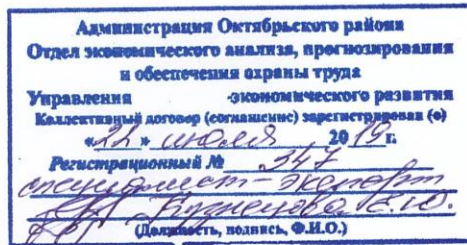 Администрация Октябрьского района
Отдел экономического анализа, прогнозирования
и обеспечения охраны труда
Управления экономического развития
Коллективный договор (соглашение) зарегистрирован (о)
«22» июля 2019 г.
Регистрационный № 347
специалист-эксперт
Кузнецова Е.Ю.
(Должность, подпись, Ф.И.О.)